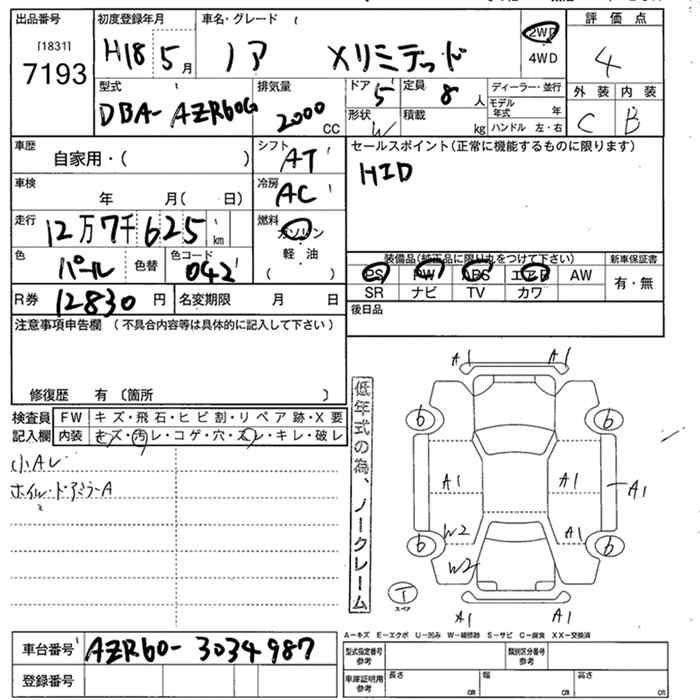 出品番号 初度登録年月 車名・グレード 評価点
[1831] 7193 H18 5月 ノア Xリミテッド 2WD 4WD 4
型式 排気量 ドア 5 定員 8人 ディーラー・並行 外装 内装
DBA-AZR60G 2000 CC 形状 W 積載 kg モデル年式 年 C B
ハンドル 左・右
車歴 自家用・( ) シフト AT セールスポイント(正常に機能するものに限ります)
HID
車検 年 月( 日) 冷房 AC
走行 12万7千625 km 燃料 ガソリン
軽油
( )
色 パール 色替 色コード 042 装備品(純正品に限り丸をつけて下さい) 新車保証書
PS PW ABS エアB AW 有・無
SR ナビ TV カワ
R券 12830円 名変期限 月 日 後日品
注意事項申告欄 (不具合内容等は具体的に記入して下さい)
修復歴 有 (箇所 )
検査員 FW キズ・飛石・ヒビ割・リペア跡・X要
記入欄 内装 キズ・汚レ・コゲ・穴・スレ・キレ・破レ
小Aレ
ホイル・ドアミラーA
低年式の為、ノークレーム
A1 A1
6 6
A1 A1 A1
W2 A1
6 6
W2
T
スペア
A1 A1
A-キズ E-エクボ U-凹み W-補修跡 S-サビ C-腐食 XX-交換済
車台番号 AZR60-3034987 型式指定番号 参考 類別区分番号 参考
登録番号 車庫証明用 参考 長さ cm 幅 cm 高さ cm